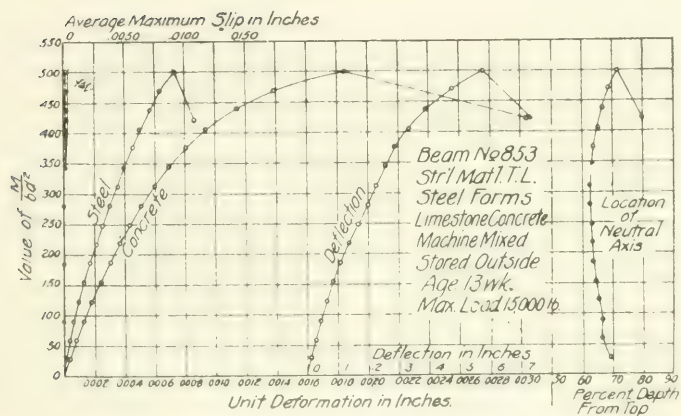 Average Maximum Slip in Inches
0 .0050 .0100 .0150
550
500
450
400
350
300
250
200
150
100
50
0
Value of M/bd²
Steel
Concrete
Deflection
Beam No 853
Str'l Mat'l. T.L.
Steel Forms
Limestone Concrete
Machine Mixed
Stored Outside
Age 13 wk.
Max. Load 15,000 lb.
Location
of
Neutral
Axis
Deflection in Inches
0 .1 .2 .3 .4 .5 .6 .7
.0002 .0004 .0006 .0008 .0010 .0012 .0014 .0016 .0018 .0020 .0022 .0024 .0026 .0028 .0030
60 70 80 90
Unit Deformation in Inches.
Percent Depth
From Top